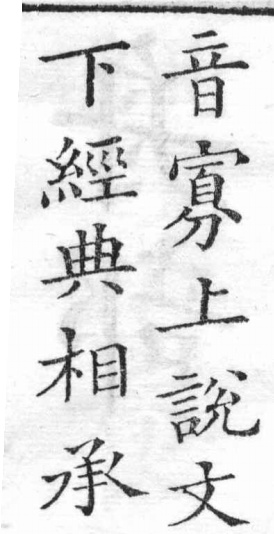 音寡上說文
下經典相承